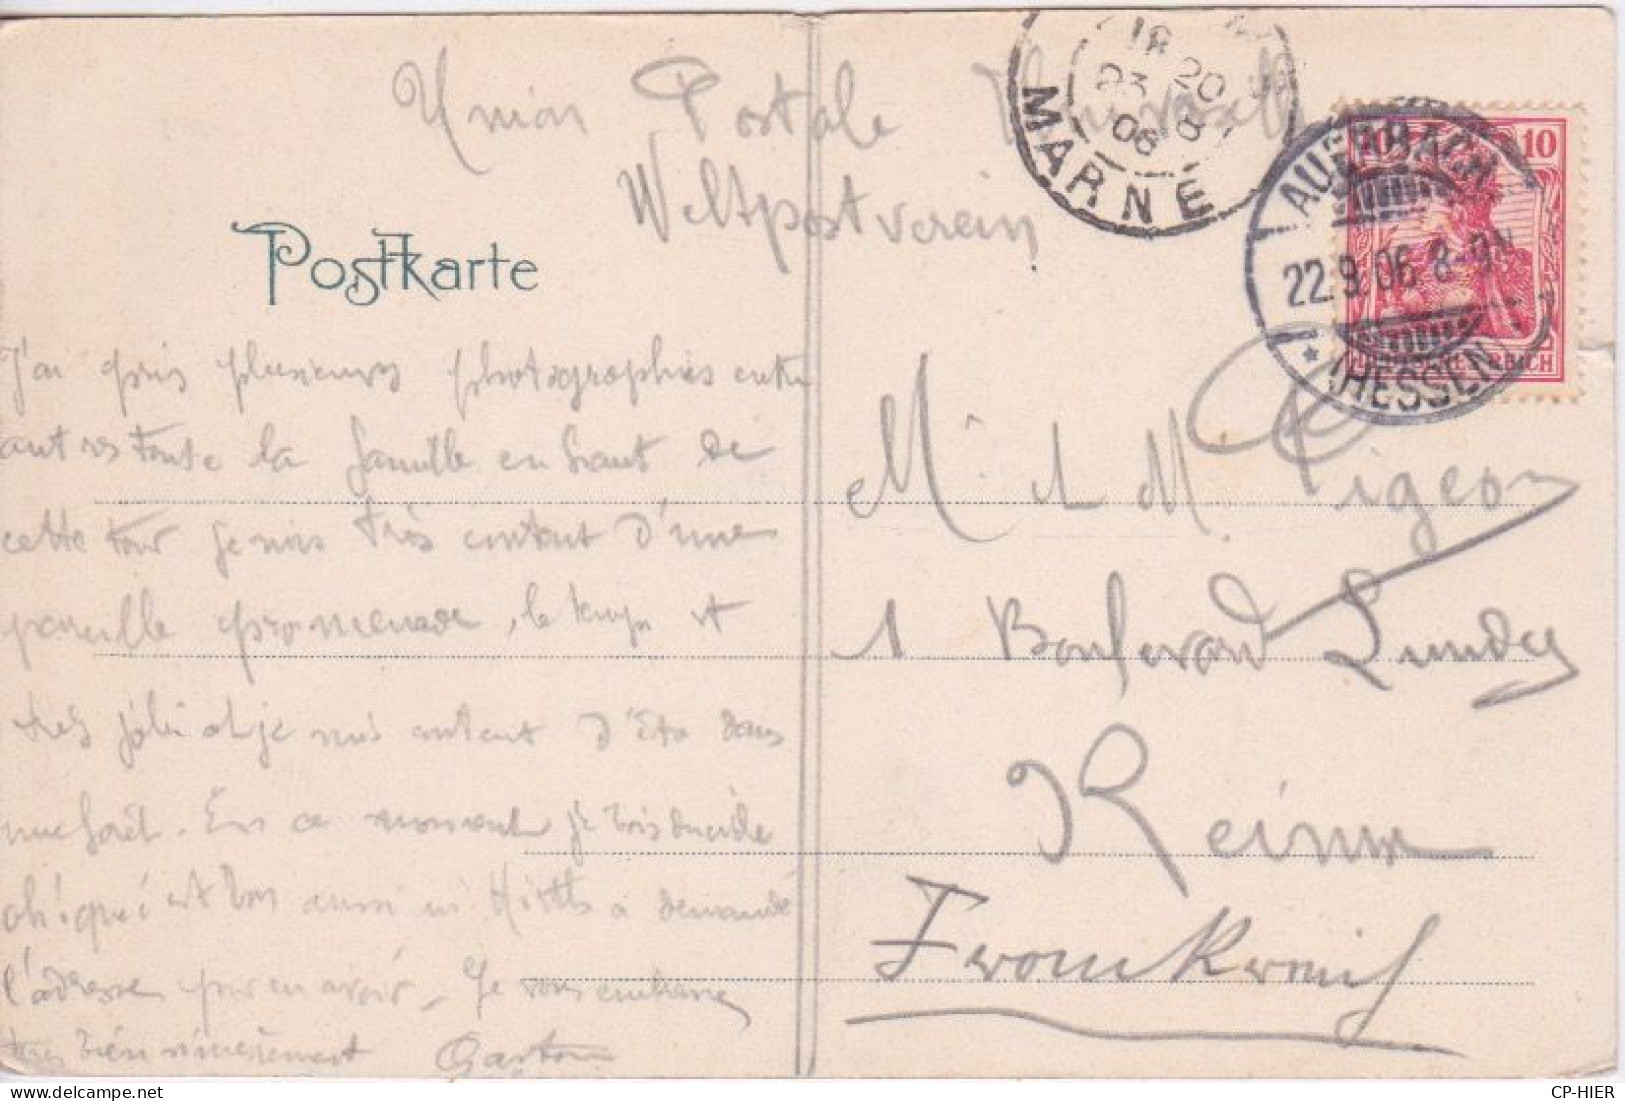 Union Postale Universelle
Weltpostverein
Postkarte
18 20
23 9
06
MARNE
AUERBACH
22.9.06 8-9N
* (HESSEN)
10 10
DEUTSCHES REICH
J'ai pris plusieurs photographies entre
autres toute la famille en haut de
cette tour je suis très content d'une
pareille promenade, le temps est
très joli et je suis content d'être dans
une forêt. En ce moment je
est bon aussi a demandé
l'adresse pour en avoir. Je vous embrasse
tous bien sincèrement Gaston
M. L. M. Pigeon
1 Boulevard Lundy
Reims
Frankreich
CP-HIER